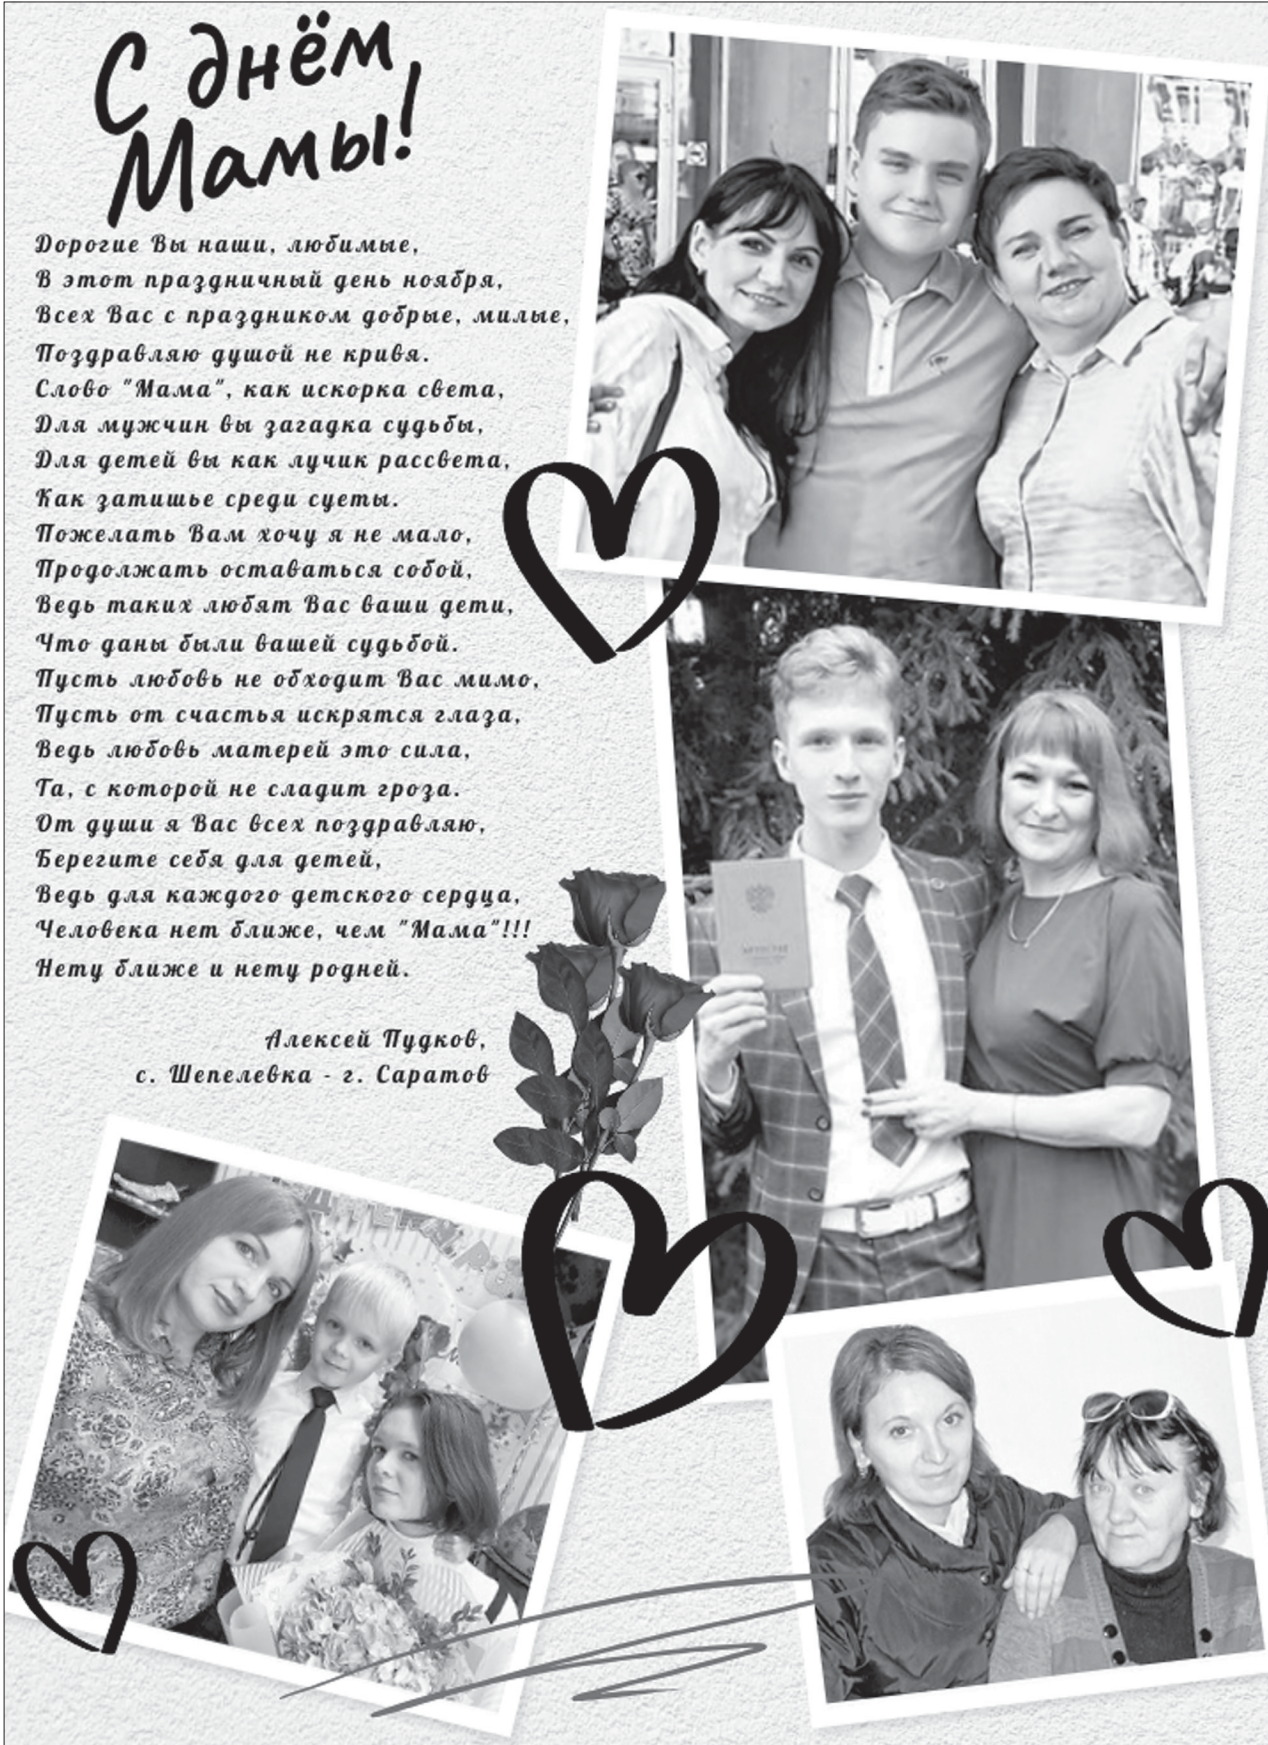 С днём
Мамы!
Дорогие Вы наши, любимые,
В этот праздничный день ноября,
Всех Вас с праздником добрые, милые,
Поздравляю душой не кривя.
Слово "Мама", как искорка света,
Для мужчин вы загадка судьбы,
Для детей вы как лучик рассвета,
Как затишье среди суеты.
Пожелать Вам хочу я не мало,
Продолжать оставаться собой,
Ведь таких любят Вас ваши дети,
Что даны были вашей судьбой.
Пусть любовь не обходит Вас мимо,
Пусть от счастья искрятся глаза,
Ведь любовь матерей это сила,
Та, с которой не сладит гроза.
От души я Вас всех поздравляю,
Берегите себя для детей,
Ведь для каждого детского сердца,
Человека нет ближе, чем "Мама"!!!
Нету ближе и нету родней.
Алексей Пудков,
с. Шепелевка - г. Саратов